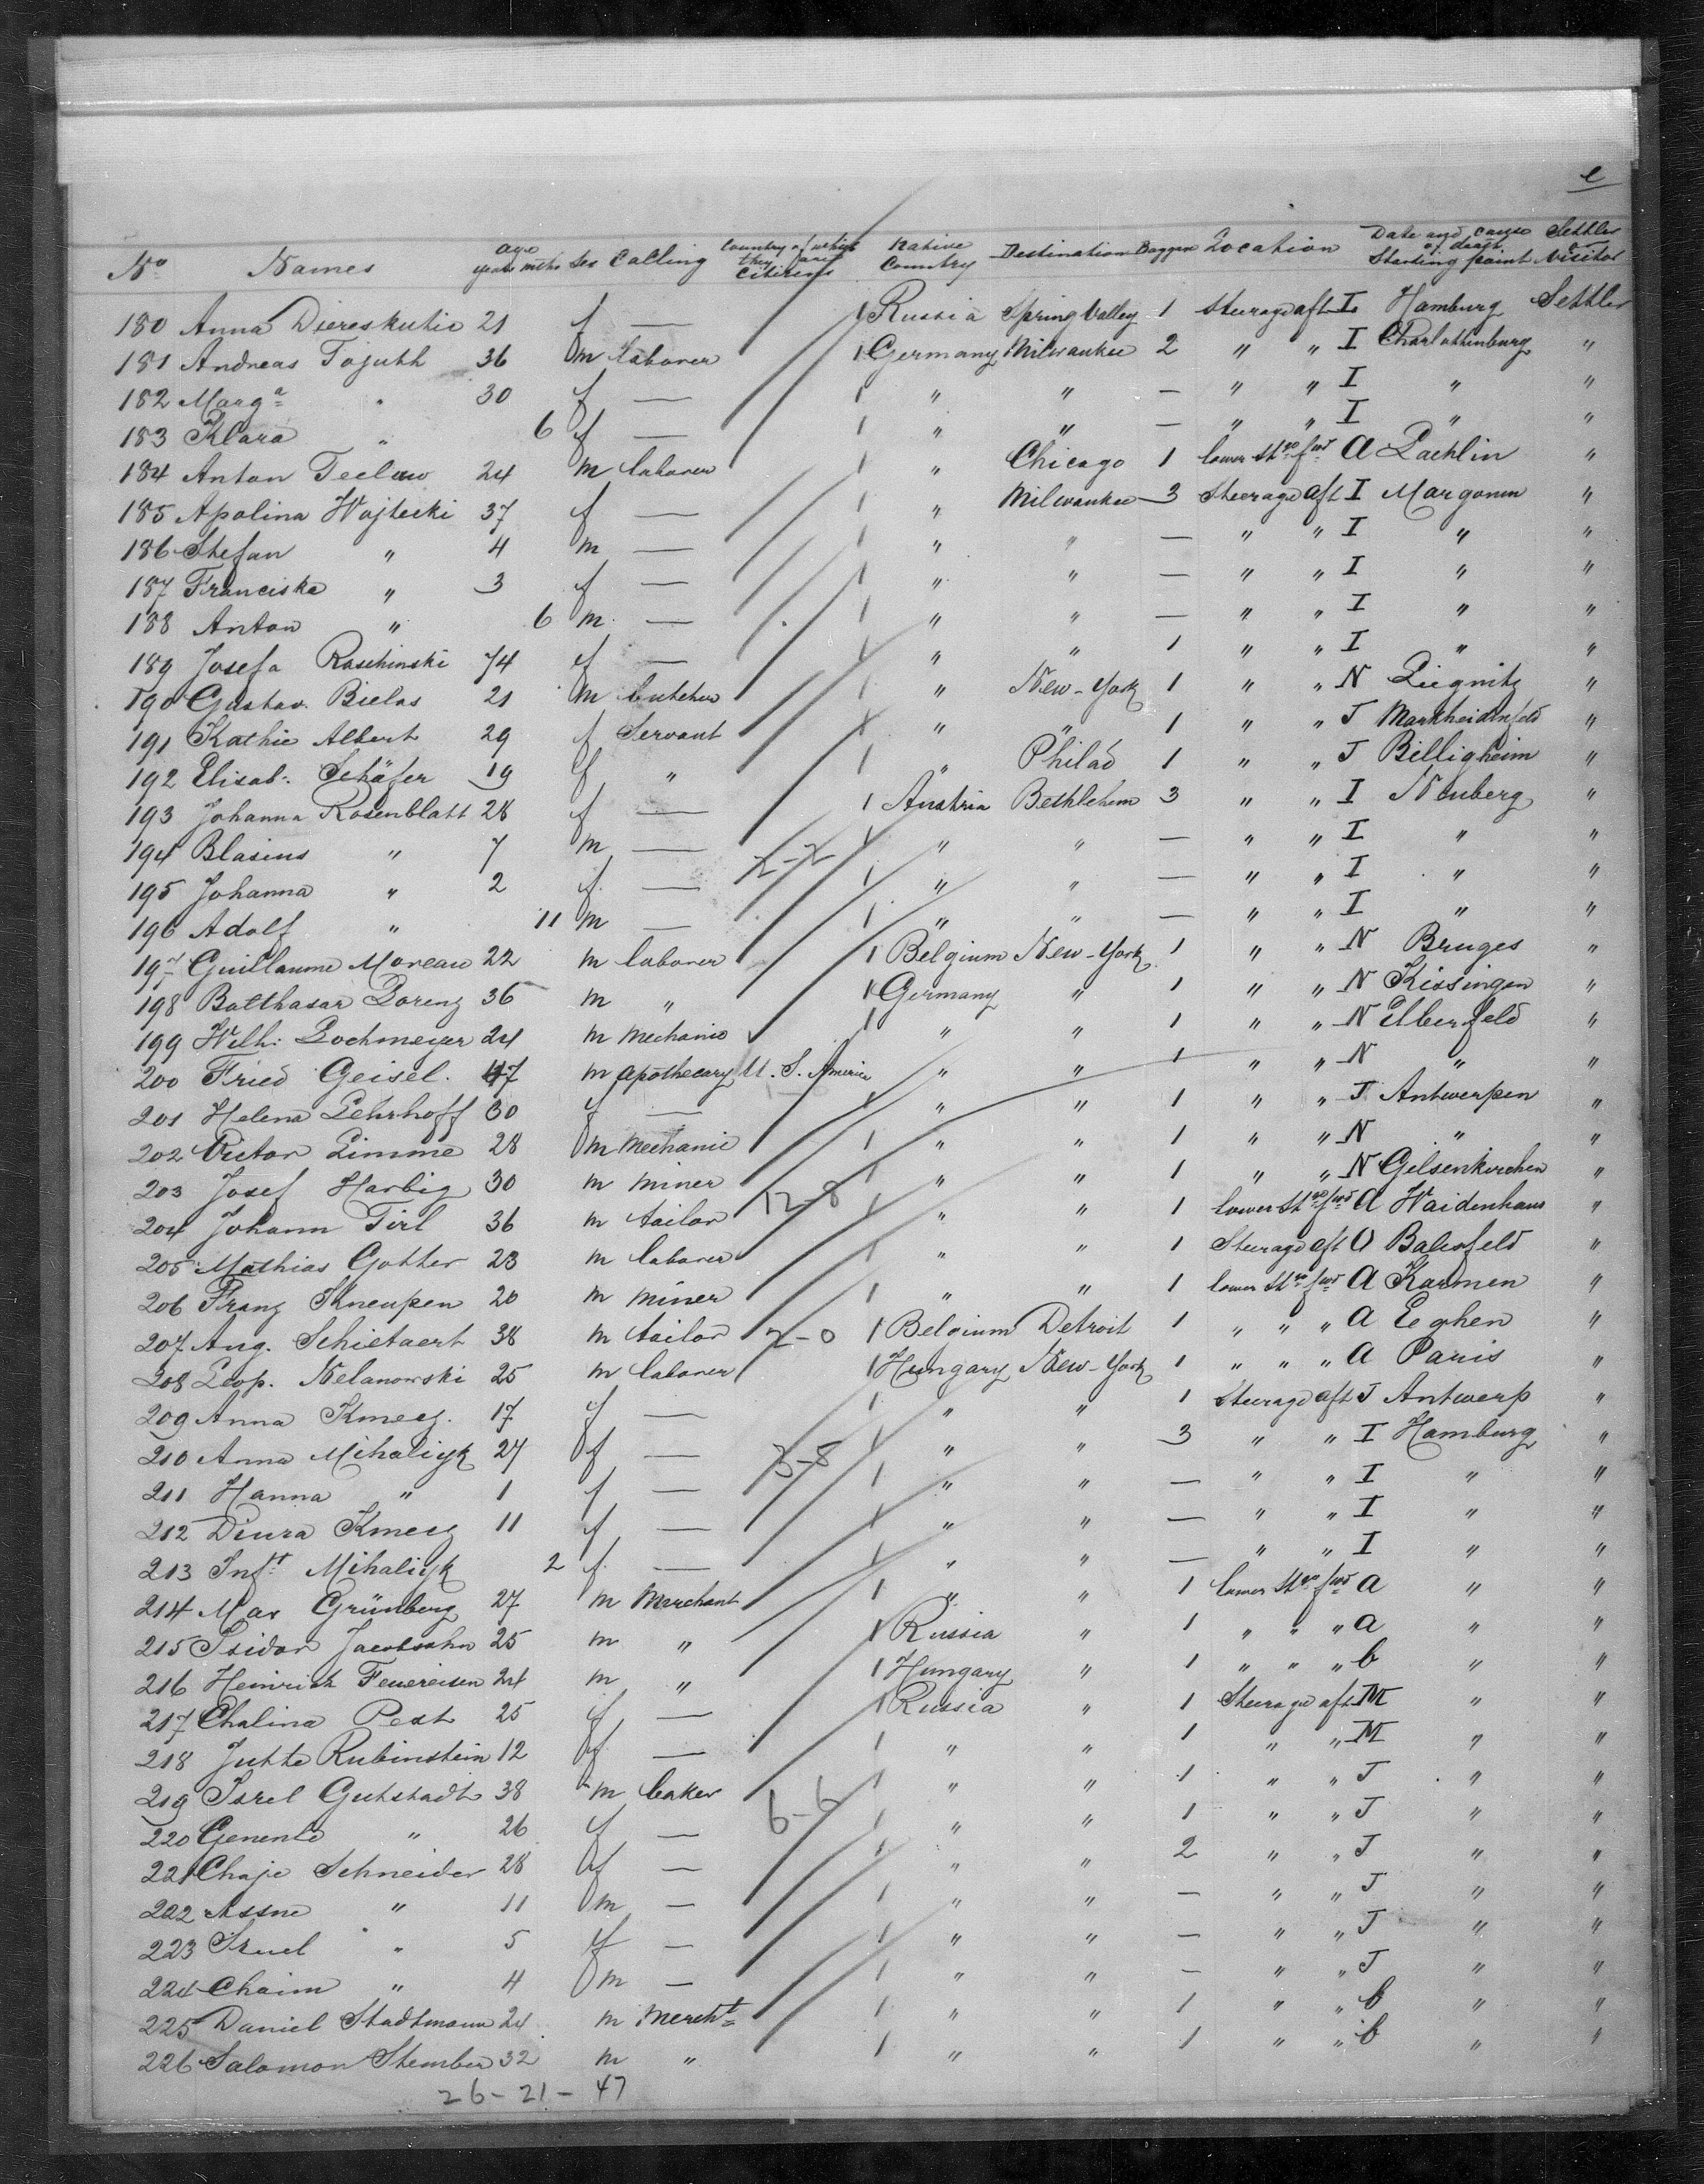 e
No Names age years mths Sex Calling Country of which they are Citizens Native Country Destination Baggage Location Date and cause of death Starting point Settler or Visitor
180 Anna Diereskutie 21 f — 1 Russia Spring Valley 1 Steerage aft I Hamburg Settler
181 Andreas Tojuth 36 m laborer 1 Germany Milwaukee 2 " " I Charlottenburg "
182 Marga " 30 f — 1 " " — " " I " "
183 Klara " 6 f — 1 " " — " " I " "
184 Anton Teclaw 24 m laborer 1 " Chicago 1 lower Stge fwd A "
185 Apolina Wojtecki 37 f — 1 " Milwaukee 3 Steerage aft I Margonin "
186 Stefan " 4 m — 1 " " — " " I " "
187 Franciska " 3 f — 1 " " — " " I " "
188 Anton " 6 m — 1 " " — " " I " "
189 Josefa Raschinski 74 f — 1 " " 1 " " I " "
190 Gustav Bielas 21 m butcher 1 " New-York 1 " " N Liegnitz "
191 Kathie Albert 29 f Servant 1 " " 1 " " J Markheidenfeld "
192 Elisab. Schäfer 19 f " 1 " Philad 1 " " J Billigheim "
193 Johanna Rosenblatt 28 f — 1 Austria Bethlehem 3 " " I Neuberg "
194 Blasius " 7 m — 1 " " — " " I " "
195 Johanna " 2 f — 2-2 1 " " — " " I " "
196 Adolf " 11 m — 1 " " — " " I " "
197 Guillaume Moreau 22 m laborer 1 Belgium New-York 1 " " N Bruges "
198 Balthasar Lorenz 36 m " 1 Germany " 1 " " N Kissingen "
199 Wilh. Lochmeyer 24 m mechanic 1 " " 1 " " N Elberfeld "
200 Fried Geisel 47 m apothecary U. S. America " " 1 " " N " "
201 Helena Lehrhoff 30 f — 1 " " 1 " " J Antwerpen "
202 Victor Limme 28 m mechanic 1 " " 1 " " N " "
203 Josef Harbig 30 m miner 1 " " 1 " " N Gelsenkirchen "
204 Johann Tirl 36 m tailor 12-8 1 " " 1 lower Stge fwd A Waidenhaus "
205 Mathias Gotter 23 m laborer 1 " " 1 Steerage aft O Balesfeld "
206 Franz Kneupen 20 m miner 1 " " 1 lower Stge fwd A Karmen "
207 Aug. Schietaert 38 m tailor 2-0 1 Belgium Detroit 1 " " " A Eeghen "
208 Leop. Nelanowski 25 m laborer 1 Hungary New-York 1 " " " A Paris "
209 Anna Kmecz 17 f — 1 " " 1 Steerage aft J Antwerp "
210 Anna Mihaliyk 24 f — 1 " " 3 " " I Hamburg "
211 Hanna " 1 f — 3-8 1 " " — " " I " "
212 Diura Kmecz 11 f — 1 " " — " " I " "
213 Inft Mihaliyk 2 f — 1 " " — " " I " "
214 Max Grünberg 27 m Merchant 1 " " 1 lower Stge fwd a " "
215 Isidor Jacobsohn 25 m " 1 Russia " 1 " " " a " "
216 Heinrich Feuereisen 24 m " 1 Hungary " 1 " " " b " "
217 Chalina Pest 25 f — 1 Russia " 1 Steerage aft M " "
218 Jutte Rubinstein 12 f — 1 " " 1 " " M " "
219 Isrel Gutstadt 38 m baker 1 " " 1 " " J " "
220 Genente " 26 f — 6-6 1 " " 1 " " J " "
221 Chaje Schneider 28 f — 1 " " 2 " " J " "
222 Assne " 11 m — 1 " " — " " J " "
223 Sruel " 5 f — 1 " " — " " J " "
224 Chaim " 4 m — 1 " " — " " J " "
225 Daniel Stadtmann 24 m Mercht 1 " " 1 " " b " "
226 Salomon Stember 32 m " 1 " " 1 " " b " "
26-21-47